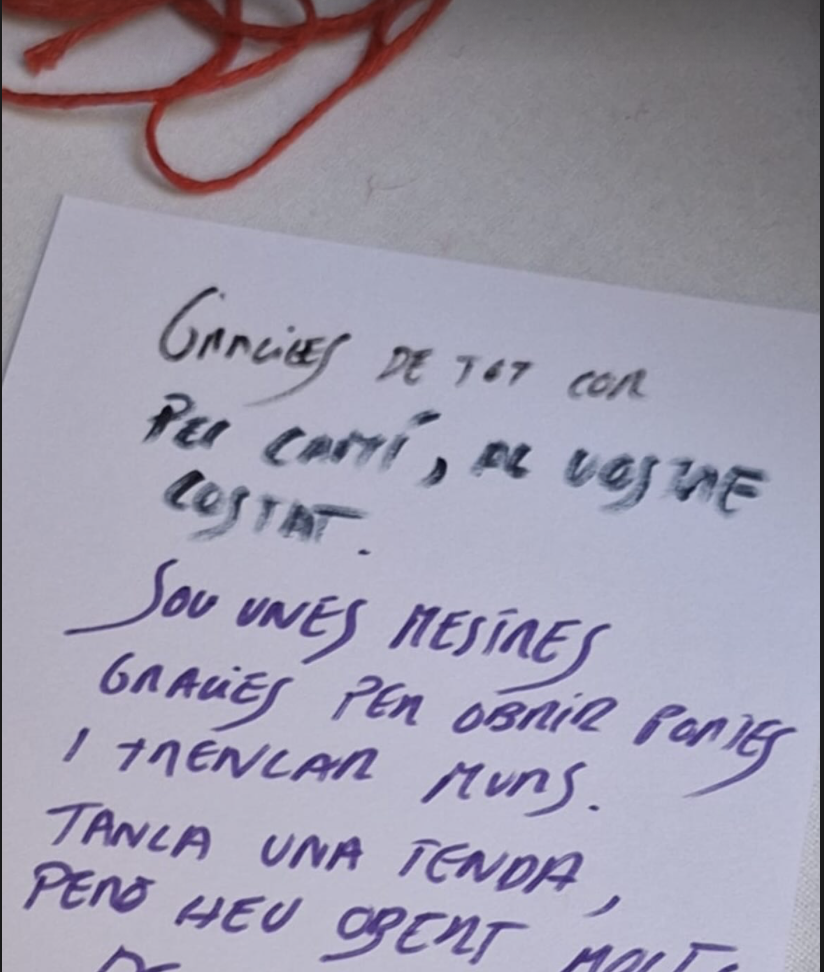 GRACIES DE TOT COR
PER CAMÍ, AL VOSTRE
COSTAT.
SOU UNES MESTRES
GRACIES PER OBRIR PORTES
I TRENCAR MURS.
TANCA UNA TENDA,
PERÒ HEU OBERT